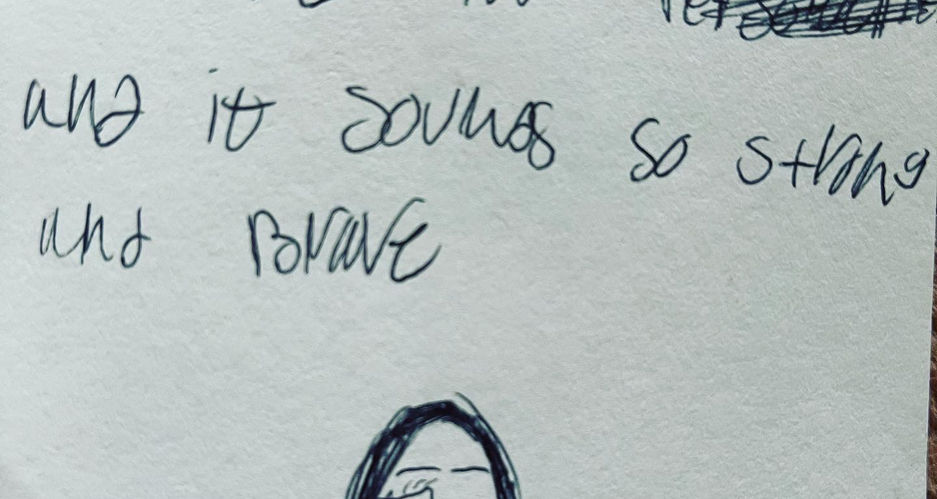 and it sounds so strong
and BRAVE